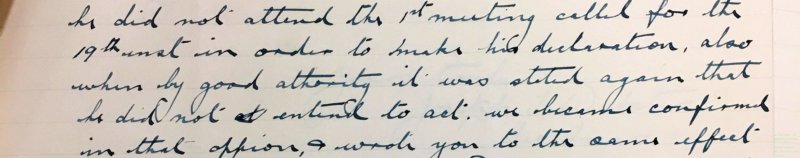 he did not attend the 1st meeting called for the
19th inst in order to make his declaration, also
when by good athority it was stated again that
he did not entend to act. we became confirmed
in that oppion, & wrote you to the same effect